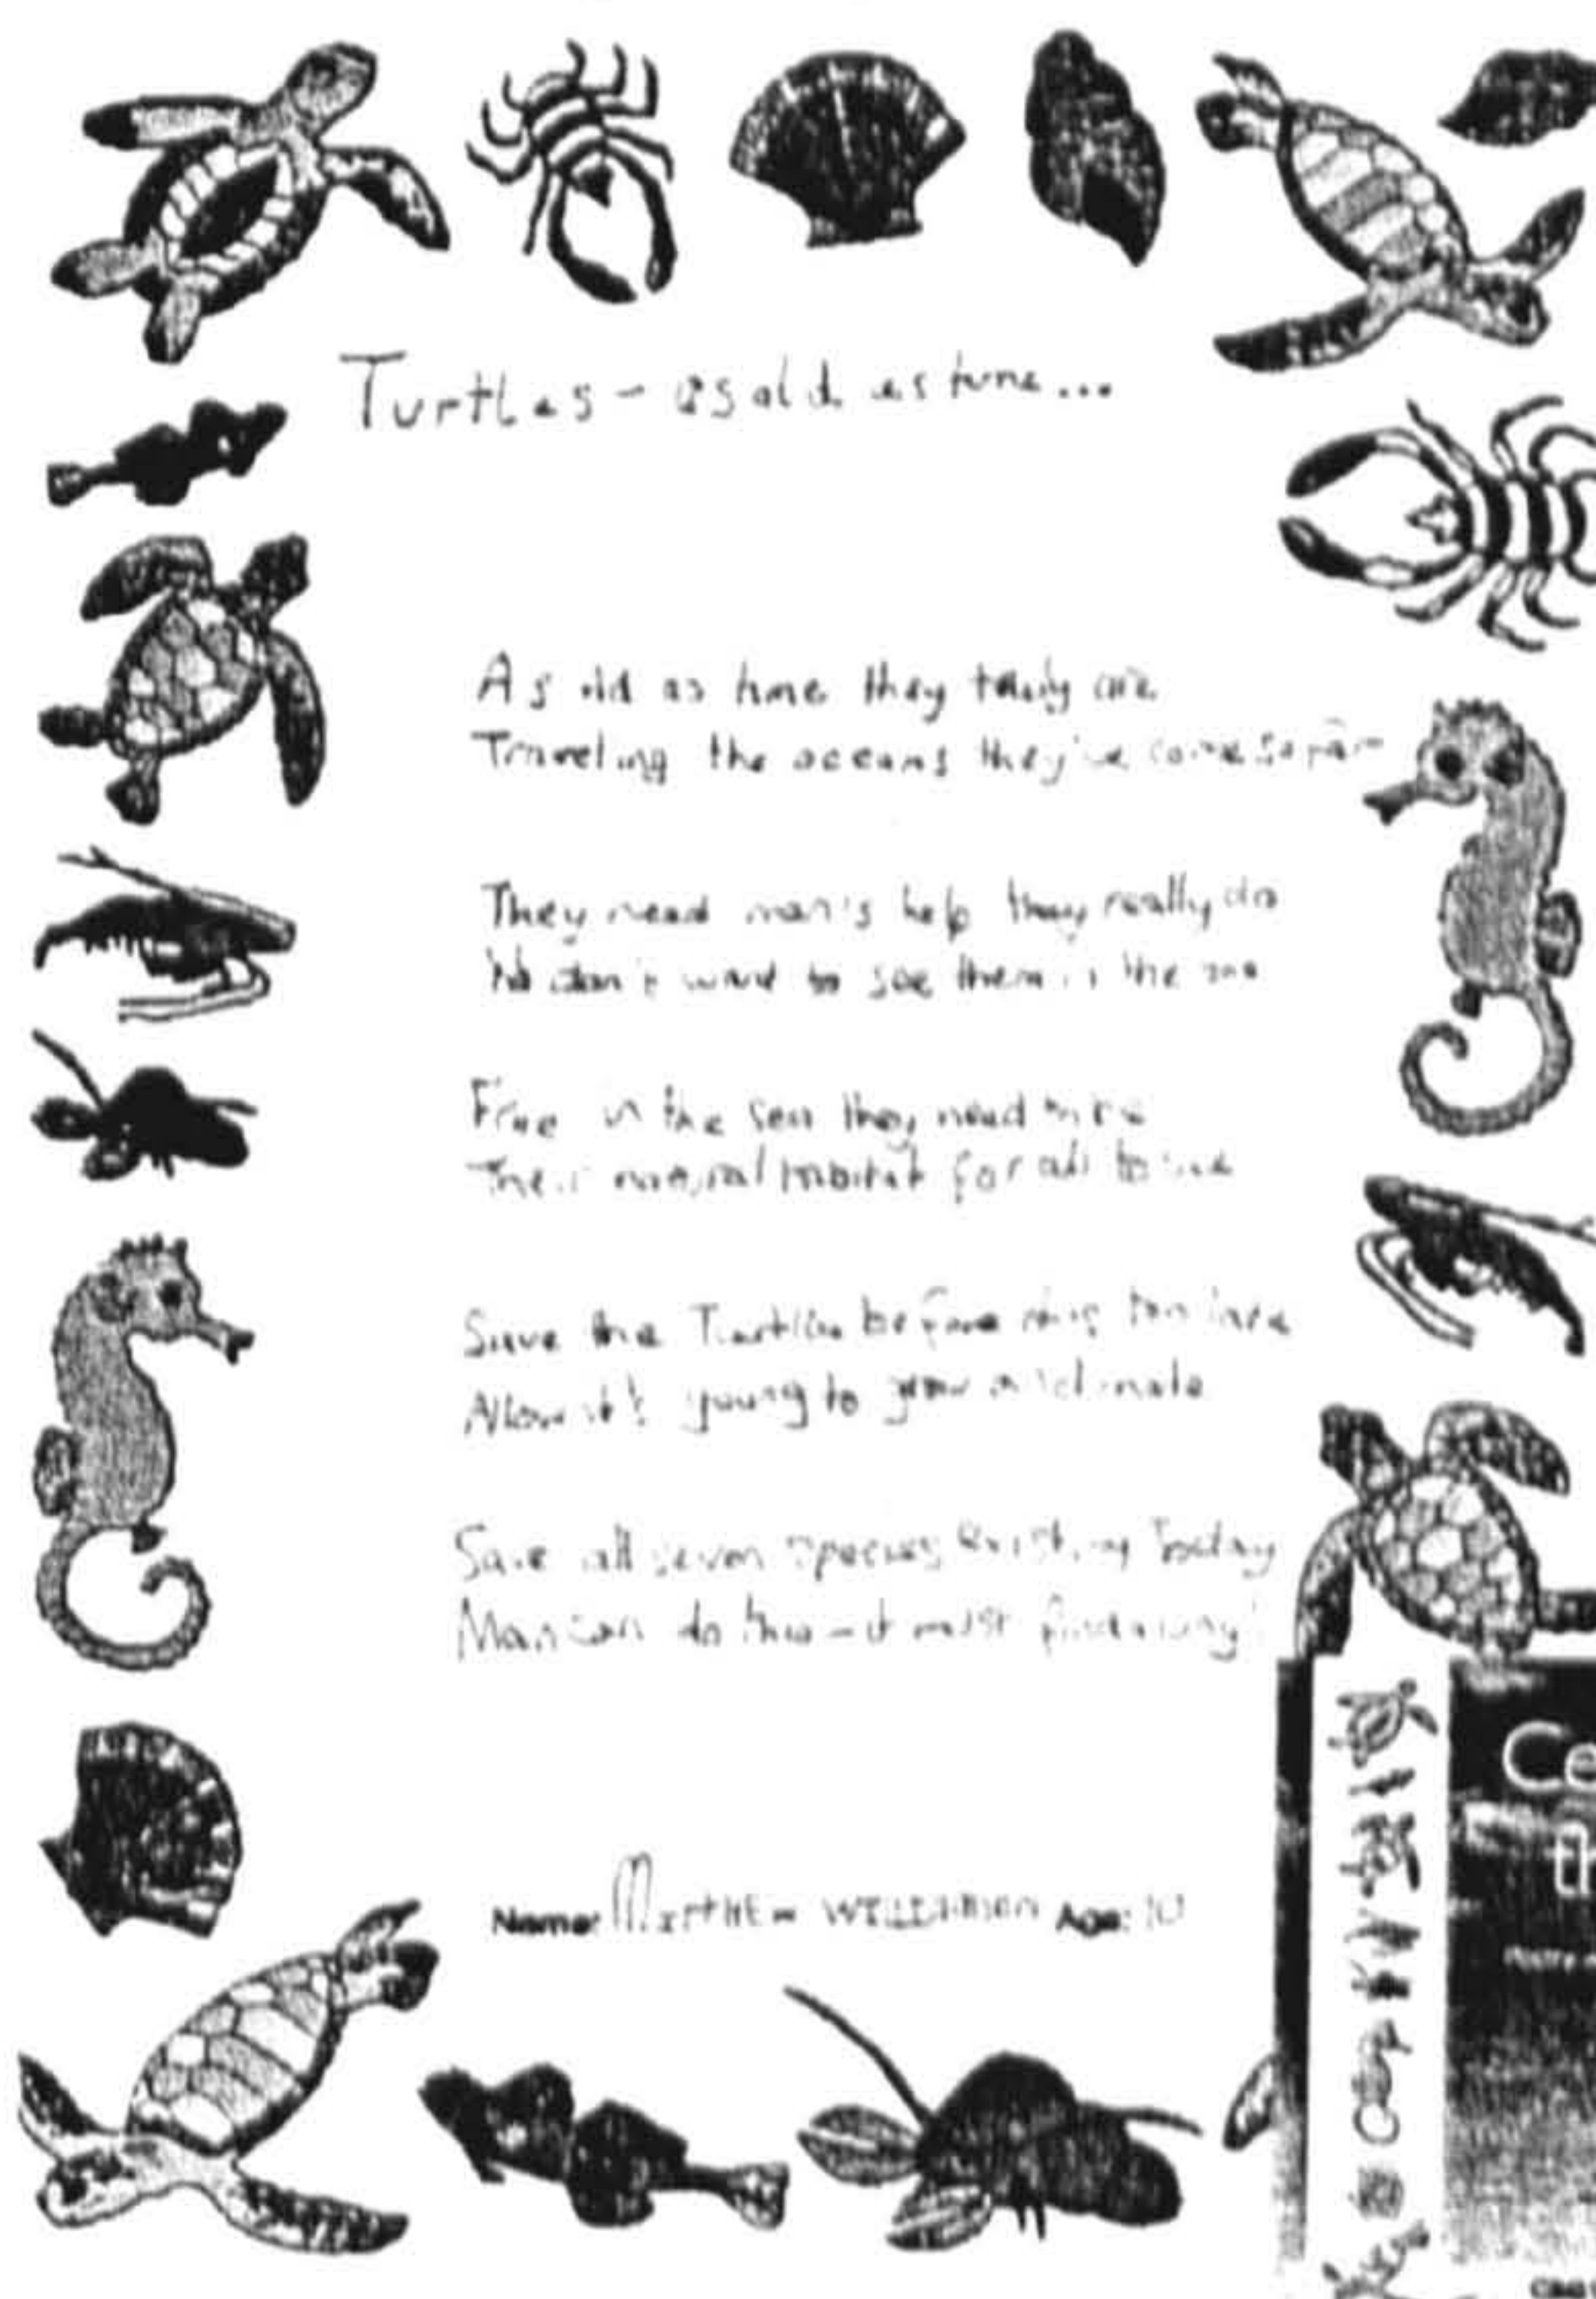 Turtles - as old as time...
As old as time they truly are
Traveling the oceans they've come so far
They need man's help they really do
We don't want to see them in the zoo
Free in the sea they need to be
Their natural habitat for all to see
Save the Turtles before it's too late
Allow it's young to grow and mate
Save all seven species existing today
Man can do this - it must find a way!
Name: MATTHEW WILLIAMSON Age: 10
Ce
th